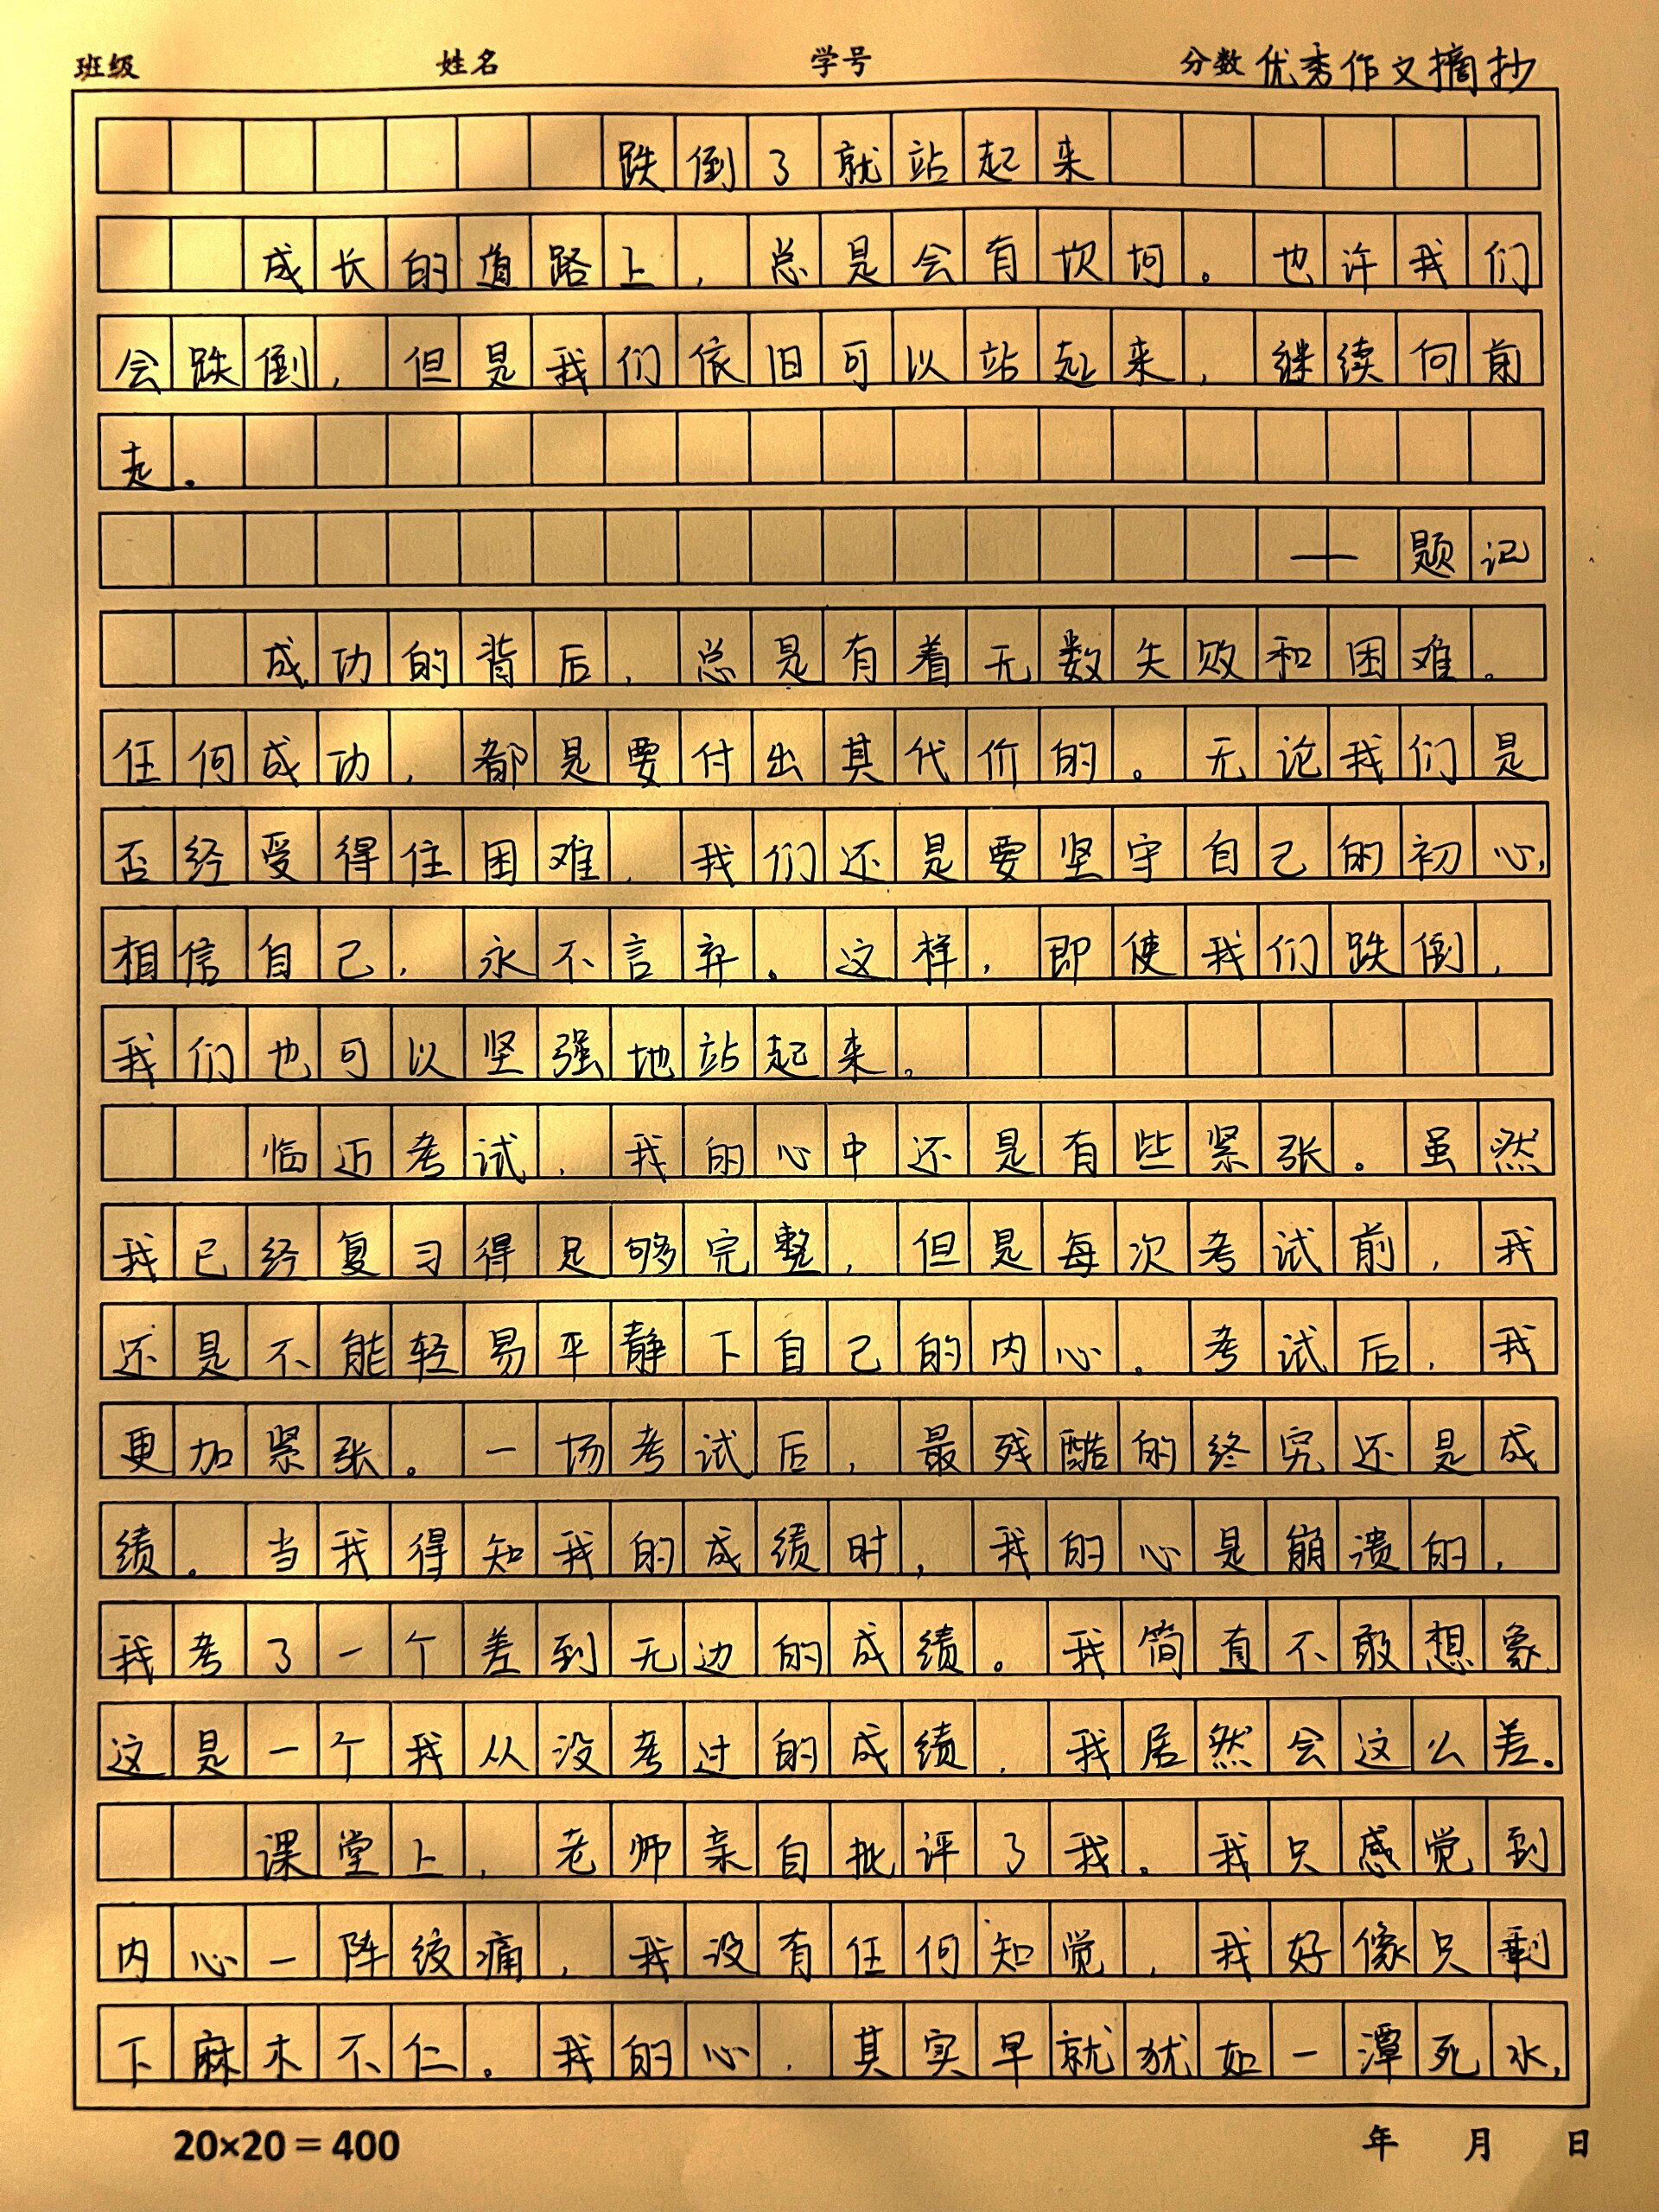 班级 姓名 学号 分数 优秀作文摘抄
跌倒了就站起来
成长的道路上，总是会有坎坷。也许我们
会跌倒，但是我们依旧可以站起来，继续向前
走。
——题记
成功的背后，总是有着无数失败和困难。
任何成功，都是要付出其代价的。无论我们是
否经受得住困难，我们还是要坚守自己的初心，
相信自己，永不言弃。这样，即使我们跌倒，
我们也可以坚强地站起来。
临近考试，我的心中还是有些紧张。虽然
我已经复习得足够完整，但是每次考试前，我
还是不能轻易平静下自己的内心。考试后，我
更加紧张。一场考试后，最残酷的终究还是成
绩。当我得知我的成绩时，我的心是崩溃的，
我考了一个差到无边的成绩。我简直不敢想象
这是一个我从没考过的成绩，我居然会这么差。
课堂上，老师亲自批评了我。我只感觉到
内心一阵绞痛，我没有任何知觉，我好像只剩
下麻木不仁。我的心，其实早就犹如一潭死水，
20×20＝400 年 月 日